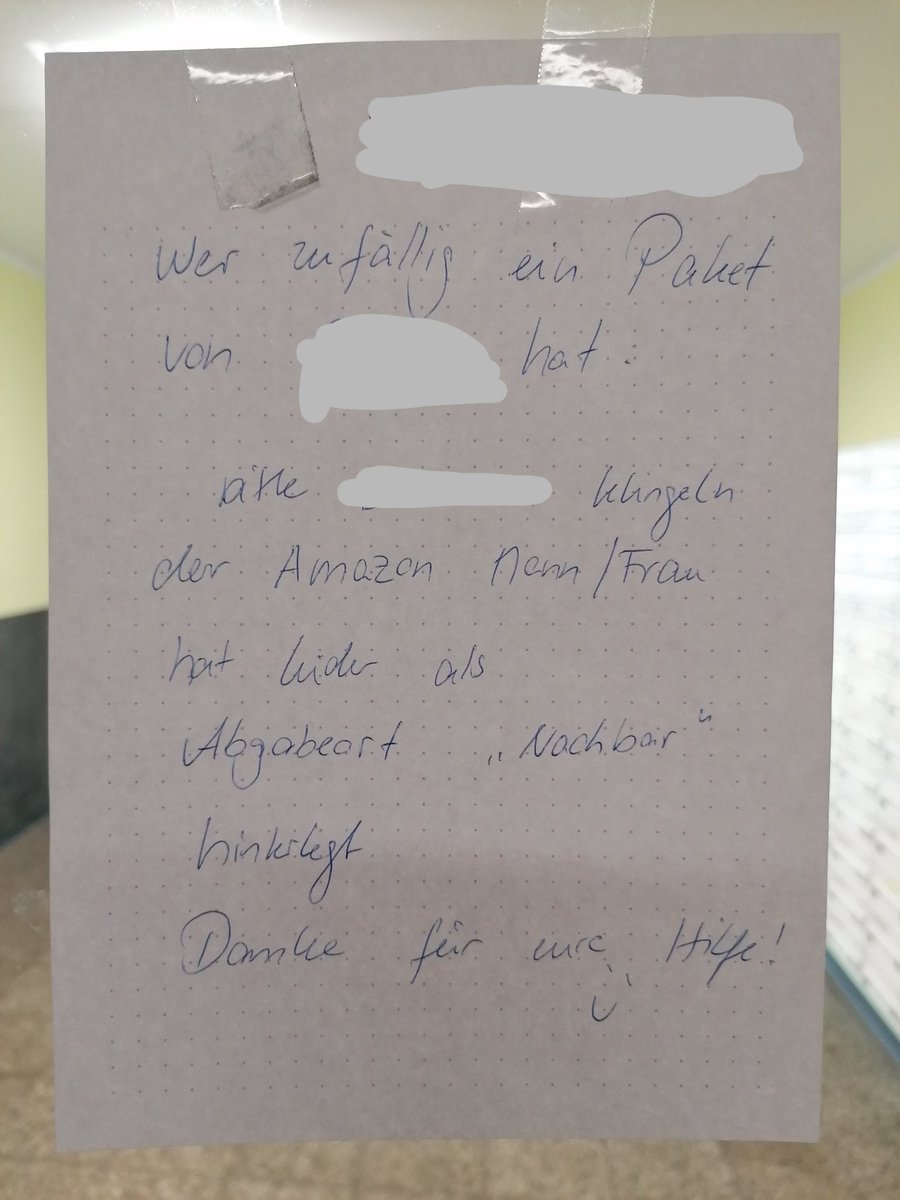 Wer zufällig ein Paket
von hat :
bitte klingeln
der Amazon Mann/Frau
hat leider als
Abgabeart „Nachbar“
hinterlegt
Danke für eure Hilfe!